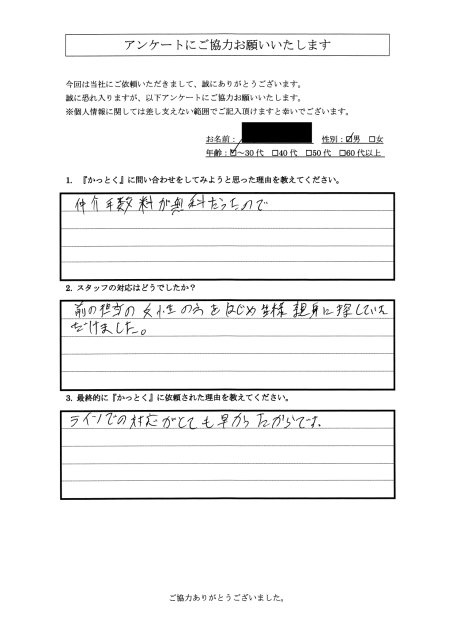 アンケートにご協力お願いいたします
今回は当社にご依頼いただきまして、誠にありがとうございます。
誠に恐れ入りますが、以下アンケートにご協力お願いします。
※個人情報に関しては差し支えない範囲でご記入頂けますと幸いでございます。
お名前： 性別：☑男 □女
年齢：☑～30代 □40代 □50代 □60代以上
1. 『かっとく』に問い合わせをしてみようと思った理由を教えてください。
仲介手数料が無料だったので
2. スタッフの対応はどうでしたか？
前の担当の女性の方をはじめ皆様親身に探していた
だけました。
3. 最終的に『かっとく』に依頼された理由を教えてください。
ラインでの対応がとても早かったからです。
ご協力ありがとうございました。